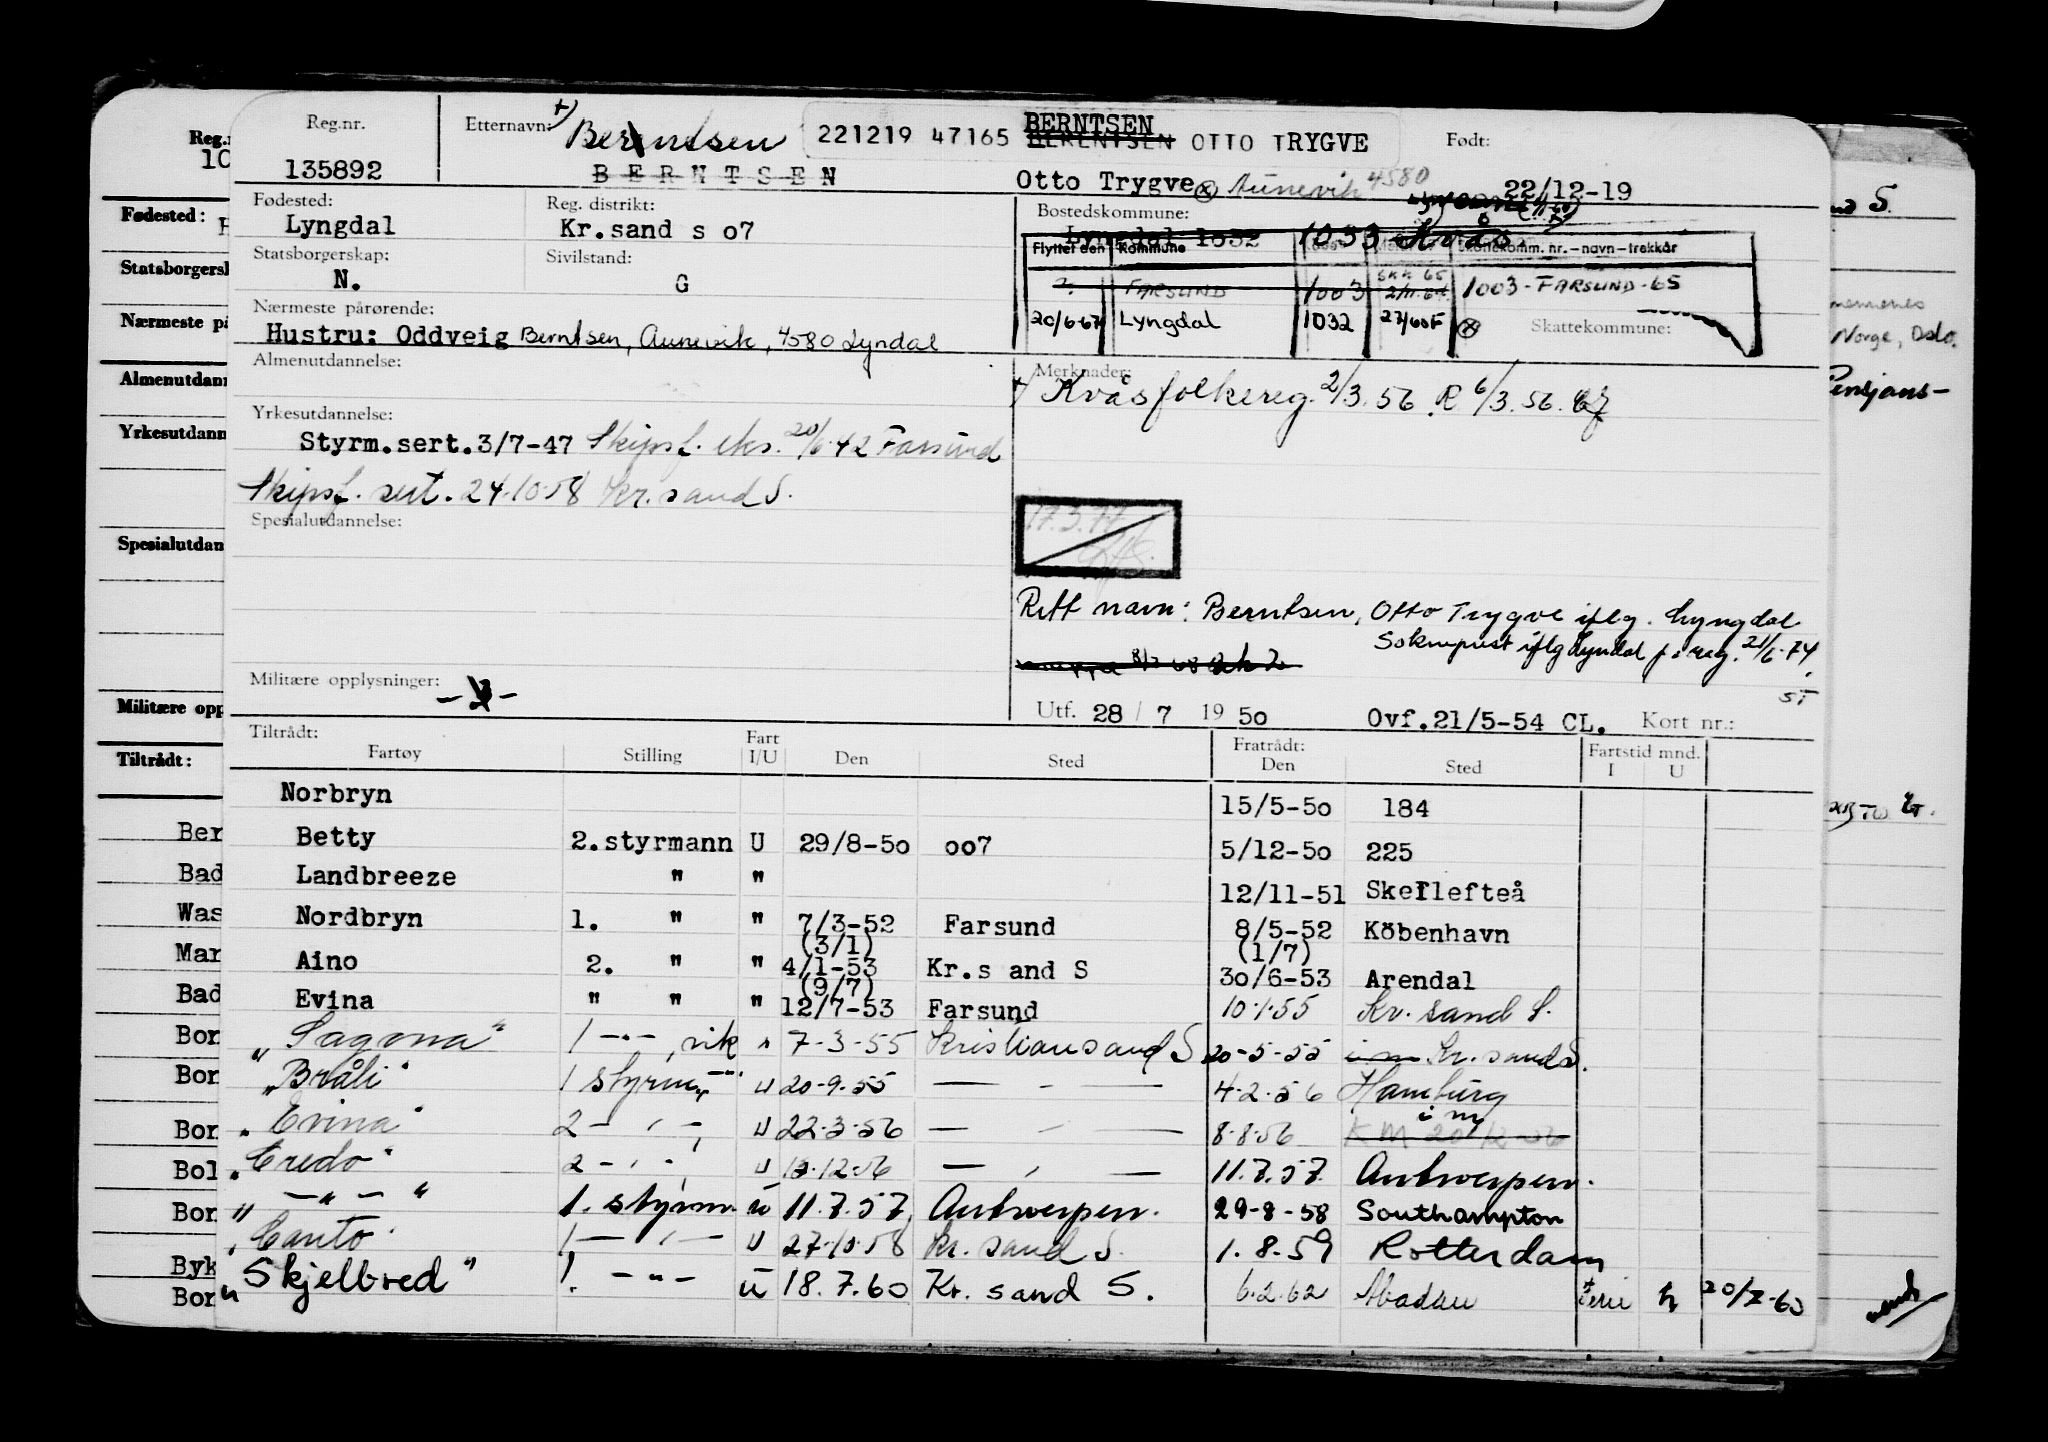 Reg.nr. Etternavn: +) Berntsen 221219 47165 BERNTSEN BERENTSEN OTTO TRYGVE Født:
135892 BERNTSEN Otto Trygve Aunevik 4580 22/12-19
Fødested: Reg. distrikt: Bostedskommune:
Lyngdal Kr.sand s o7 Lyngdal 1032 1033 Kvås
Statsborgerskap: Sivilstand: Flyttet den Kommune Skattekomm. nr. – navn – trekkår
N. G ?. FARSUND 1003 Skk 65 2/11-64 1003 - FARSUND - 65
Nærmeste pårørende: 20/6-67 Lyngdal 1032 27/60F Skattekommune:
Hustru: Oddveig Berntsen, Aunevik, 4580 Lyndal
Almenutdannelse: Merknader:
+/ Kvås folkereg. 2/3.56. R 6/3.56.
Yrkesutdannelse:
Styrm.sert.3/7-47 Skipsf. eks. 20/6.42 Farsund
Skipsf. sert. 24.10.58 Kr.sand S.
Spesialutdannelse:
17.3.77
Rett navn: Berntsen, Otto Trygve iflg. Lyngdal
Sokneprest iflg Lyndal f.reg. 21/6-74
ST
Militære opplysninger:
Utf. 28 / 7 19 50 Ovf.21/5-54 CL. Kort nr.:
Tiltrådt: Fart Fratrådt: Fartstid mnd.
Fartøy Stilling I/U Den Sted Den Sted I U
Norbryn 15/5-50 184
Betty 2.styrmann U 29/8-50 oo7 5/12-50 225
Landbreeze " " 12/11-51 Skellefteå
Nordbryn 1. " " 7/3-52 Farsund 8/5-52 Köbenhavn
(3/1) (1/7)
Aino 2. " " 4/1-53 Kr.s and S 30/6-53 Arendal
(9/7)
Evina " " " 12/7-53 Farsund 10.1.55 Kr. sand S.
"Sagona" 1 -"- , vik " 7-3-55 Kristiansand S 20-5-55 i m Kr. sand S.
"Bråli" 1 styrm. U 20-9-55 — - — 4.2.56 Hamburg
"Evina" 2 - " - U 22.3.56 — - — 8.8.56 i m
"Credo" 2 - " - U 12.56 — " — 11.7.57. Antwerpen.
" — " — " 1. styrm. u 11.7.57, Antwerpen. 29-8-58 Southampton
"Canto" 1 — " — U 27.10.58 Kr. sand S. 1.8.59 Rotterdam
"Skjelbred" 1. - " - u 18.7.60 Kr. sand S. 6.2.62 Abadan Ferie 20/7-60
Reg.n
10
Fødested:
H
Statsborgersk
Nærmeste på
Almenutdann
Yrkesutdann
Spesialutdan
Militære opp
Tiltrådt:
Ber
Bad
Was
Mar
Bad
Bor
Bor
Bor
Bol
Bor
Byk
Bor
S.
Norge, Oslo.
Pensjons-